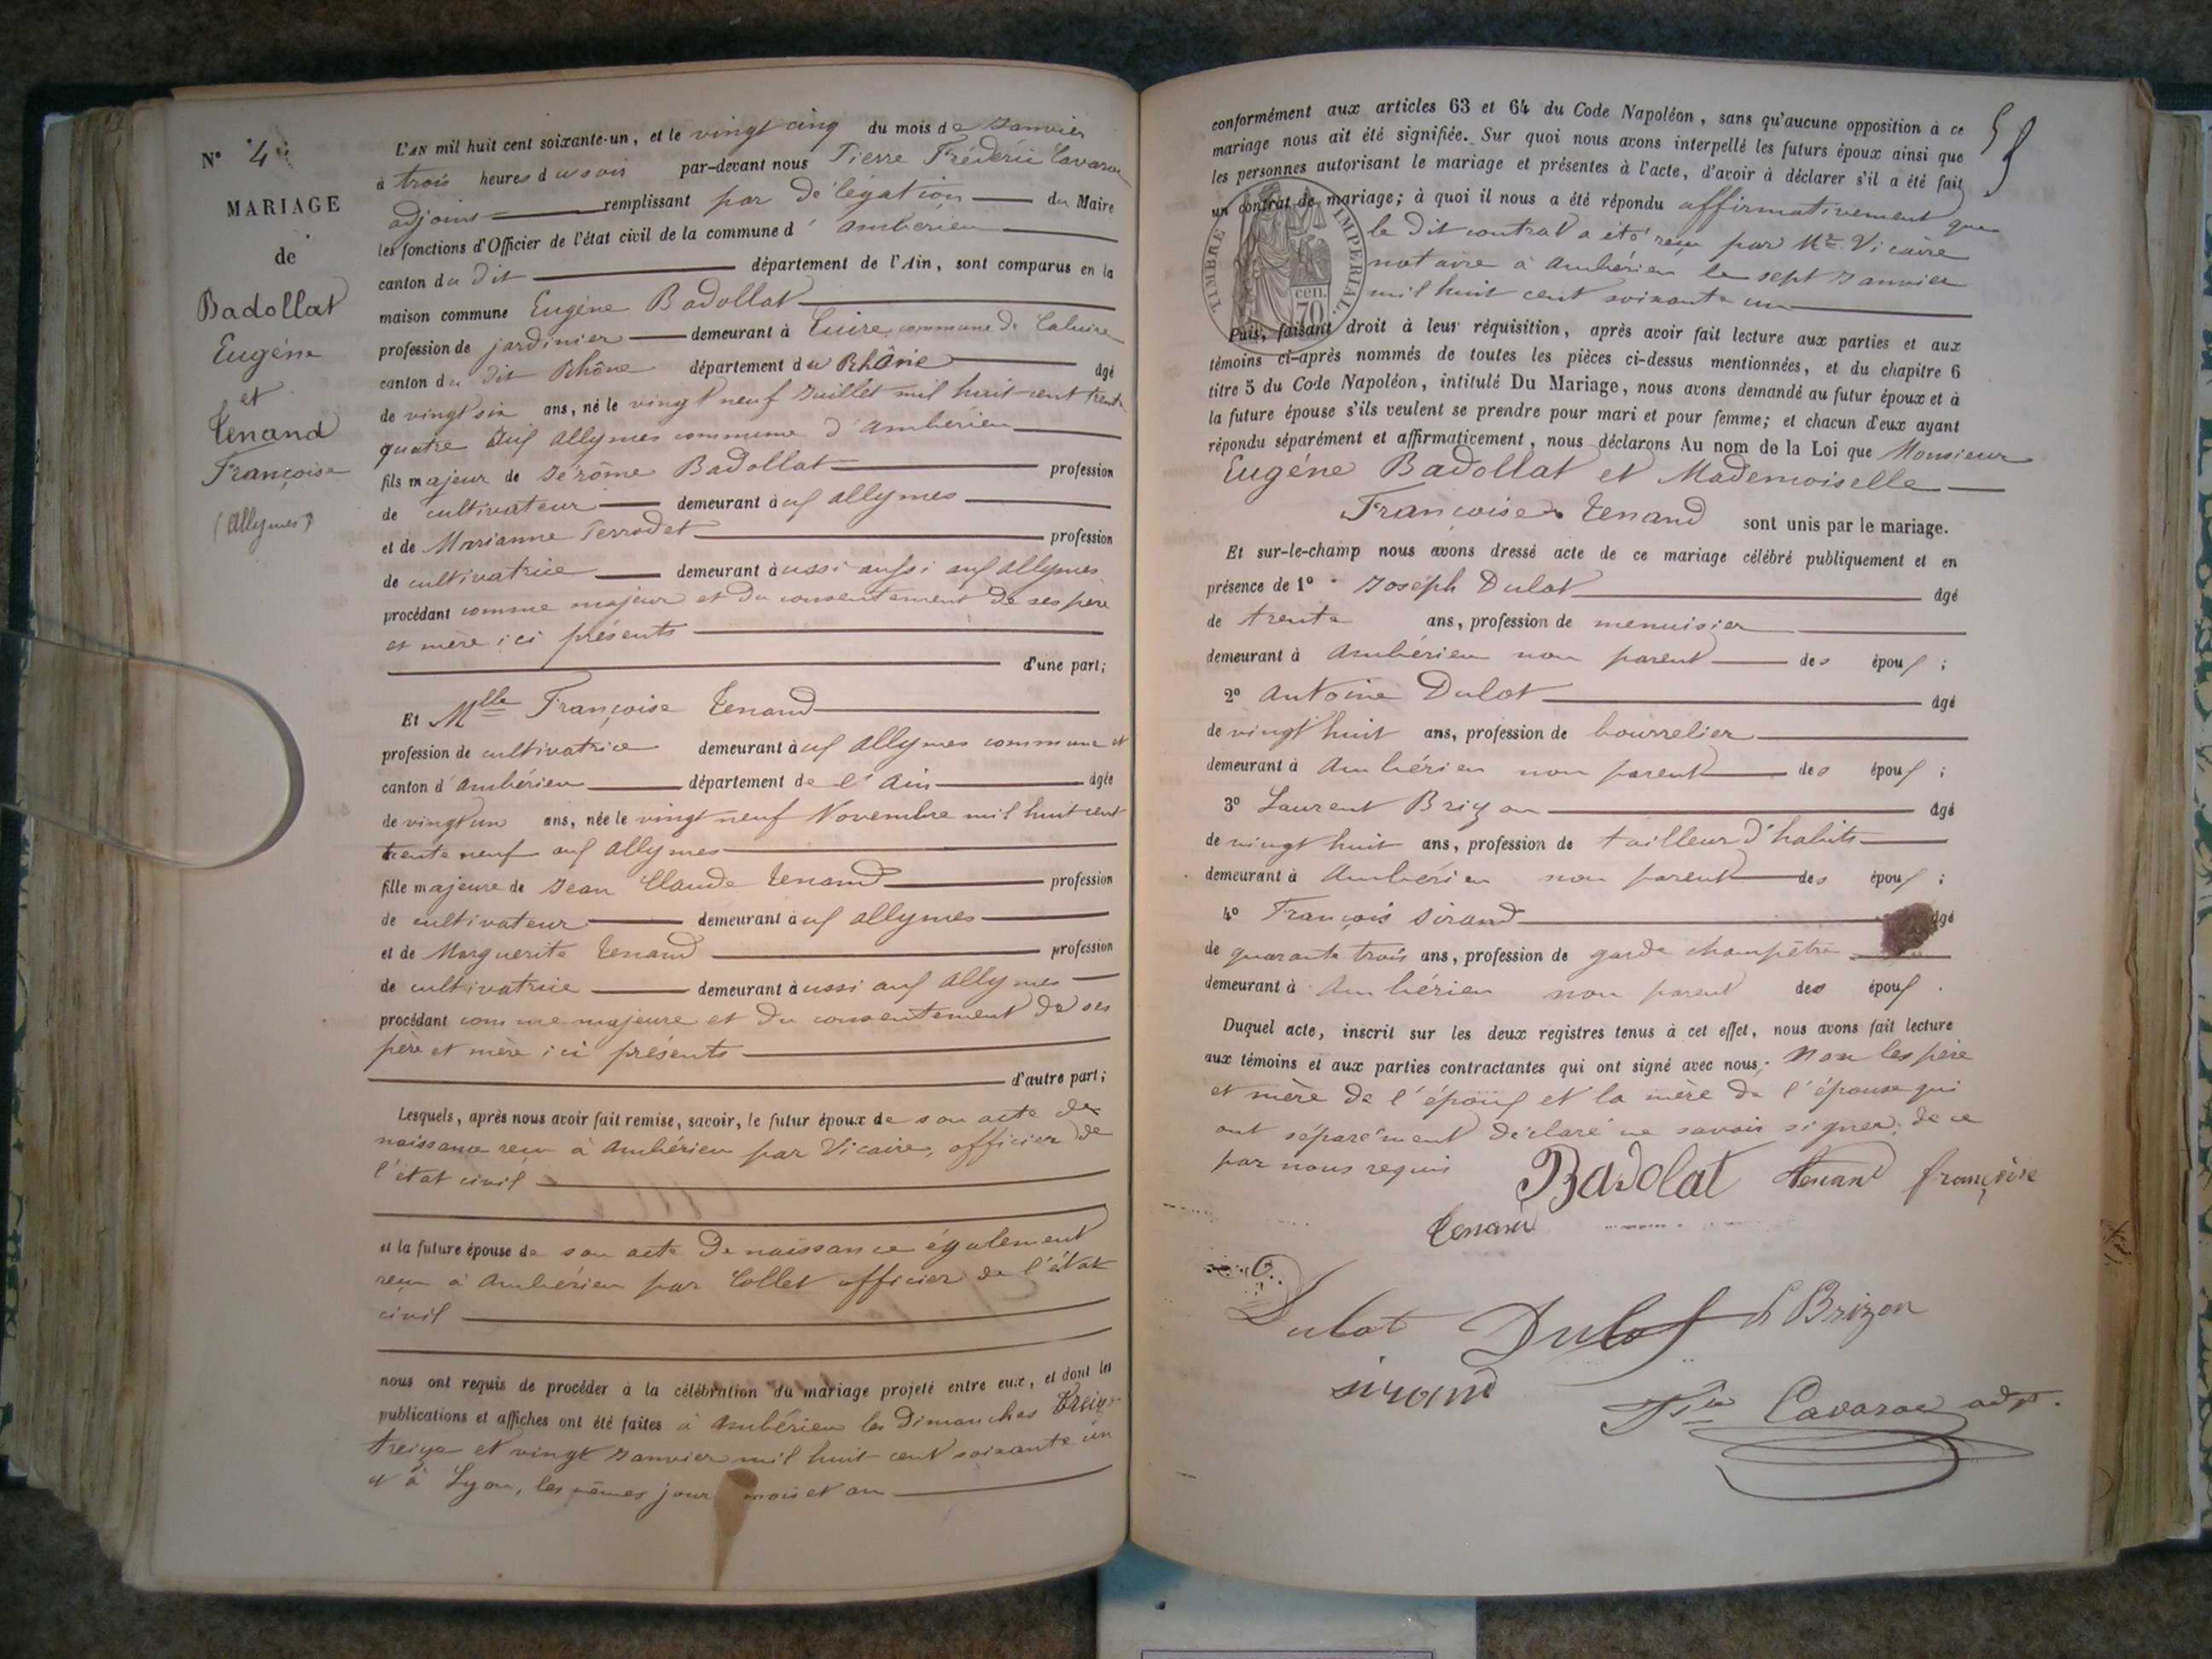 N° 4
MARIAGE
de
Badollat
Eugéne
et
Tenand
Françoise
(Allymes)
L'AN mil huit cent soixante-un, et le vingt cinq du mois de Janvier
à trois heures du soir par-devant nous Pierre Fréderic Cavaroc
adjoint remplissant par délégation du Maire
les fonctions d'Officier de l'état civil de la commune d'ambérieu
canton du dit département de l'Ain, sont comparus en la
maison commune Eugéne Badollat
profession de jardinier demeurant à Cuire commune de Caluire
canton du dit Rhône département du Rhône âgé
de vingt six ans, né le vingt neuf Juillet mil huit cent trente
quatre aux allymes commune d'ambérieu
fils majeur de Jérôme Badollat profession
de cultivateur demeurant aux allymes
et de Marianne Terrodet profession
de cultivatrice demeurant aussi aussi aux allymes
procédant comme majeur et du consentement de ses père
et mère ici présents
d'une part;
Et Mlle Françoise Tenand
profession de cultivatrice demeurant aux allymes commune et
canton d'ambérieu département de l'ain âgée
de vingt un ans, née le vingt neuf Novembre mil huit cent
trente neuf aux allymes
fille majeure de Jean Claude Tenand profession
de cultivateur demeurant aux allymes
et de Marguerite Tenand profession
de cultivatrice demeurant aussi aux allymes
procédant comme majeure et du consentement de ses
père et mère ici présents
d'autre part;
Lesquels, après nous avoir fait remise, savoir, le futur époux de son acte de
naissance reçu à ambérieu par Vicaire, officier de
l'état civil
et la future épouse de son acte de naissance également
reçu à ambérieu par Collet officier de l'état
civil
nous ont requis de procéder à la célébration du mariage projeté entre eux, et dont les
publications et affiches ont été faites à ambérieu les dimanches
treize et vingt Janvier mil huit cent soixante un
et à Lyon, les mêmes jour mois et an
conformément aux articles 63 et 64 du Code Napoléon, sans qu'aucune opposition à ce
mariage nous ait été signifiée. Sur quoi nous avons interpellé les futurs époux ainsi que
les personnes autorisant le mariage et présentes à l'acte, d'avoir à déclarer s'il a été fait
un contrat de mariage; à quoi il nous a été répondu affirmativement que
le dit contrat a été reçu par Me Vicaire
notaire à ambérieu le sept Janvier
mil huit cent soixante un
TIMBRE IMPERIAL.
cen.
70
Puis, faisant droit à leur réquisition, après avoir fait lecture aux parties et aux
témoins ci-après nommés de toutes les pièces ci-dessus mentionnées, et du chapitre 6
titre 5 du Code Napoléon, intitulé Du Mariage, nous avons demandé au futur époux et à
la future épouse s'ils veulent se prendre pour mari et pour femme; et chacun d'eux ayant
répondu séparément et affirmativement, nous déclarons Au nom de la Loi que Monsieur
Eugéne Badollat et Mademoiselle
Françoise Tenand sont unis par le mariage.
Et sur-le-champ nous avons dressé acte de ce mariage célébré publiquement et en
présence de 1° Joseph Dulot âgé
de trente ans, profession de menuisier
demeurant à ambérieu non parent des époux;
2° antoine Dulot âgé
de vingt huit ans, profession de bourrelier
demeurant à ambérieu non parent des époux;
3° Laurent Brizon âgé
de vingt huit ans, profession de tailleur d'habits
demeurant à ambérieu non parent des époux;
4° François Sirand âgé
de quarante trois ans, profession de garde champêtre
demeurant à ambérieu non parent des époux.
Duquel acte, inscrit sur les deux registres tenus à cet effet, nous avons fait lecture
aux témoins et aux parties contractantes qui ont signé avec nous, non les père
et mère de l'époux et la mère de l'épouse qui
ont séparément déclaré ne savoir signer, de ce
par nous requis
Badolat tenand françoise
tenand
Dulot Dulot L Brizon
sirand
Cavaroc adjt.